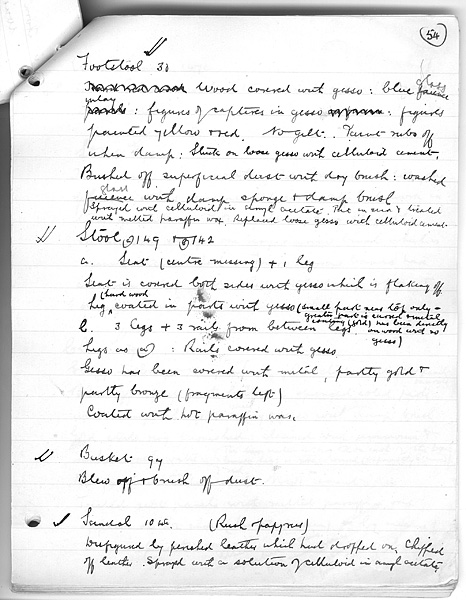 54
Footstool 30
Wood covered with gesso: blue glass
inlay: figures of captives in gesso: figures
painted yellow & red. No gilt. Paint rubs off
when damp: Stuck on loose gesso with celluloid cement.
Brushed off superficial dust with dry brush: washed
glass
faience with damp sponge & damp brush
Sprayed with celluloid in amyl acetate. The in situ's treated
with melted paraffin wax. Replaced loose gesso with celluloid cement.
Stool, (a) 149 + (b) 142
a. Seat (centre missing) + 1 leg
Seat is covered both sides with gesso which is flaking off
(hard wood)
Leg coated in parts with gesso (small part near top only a
greater part is curved & metal
b. 3 legs + 3 rails from between legs
covering (gold) has been directly
on wood with no
gesso)
Legs as a): Rails covered with gesso.
Gesso has been covered with metal, partly gold &
partly bronze (fragments left)
Coated with hot paraffin wax.
Basket 97
Blew off & brush off dust.
Sandal 104a. (Rush & papyrus)
Disfigured by perished leather which had dropped on. Chipped
off leather. Sprayed with a solution of celluloid in amyl acetate